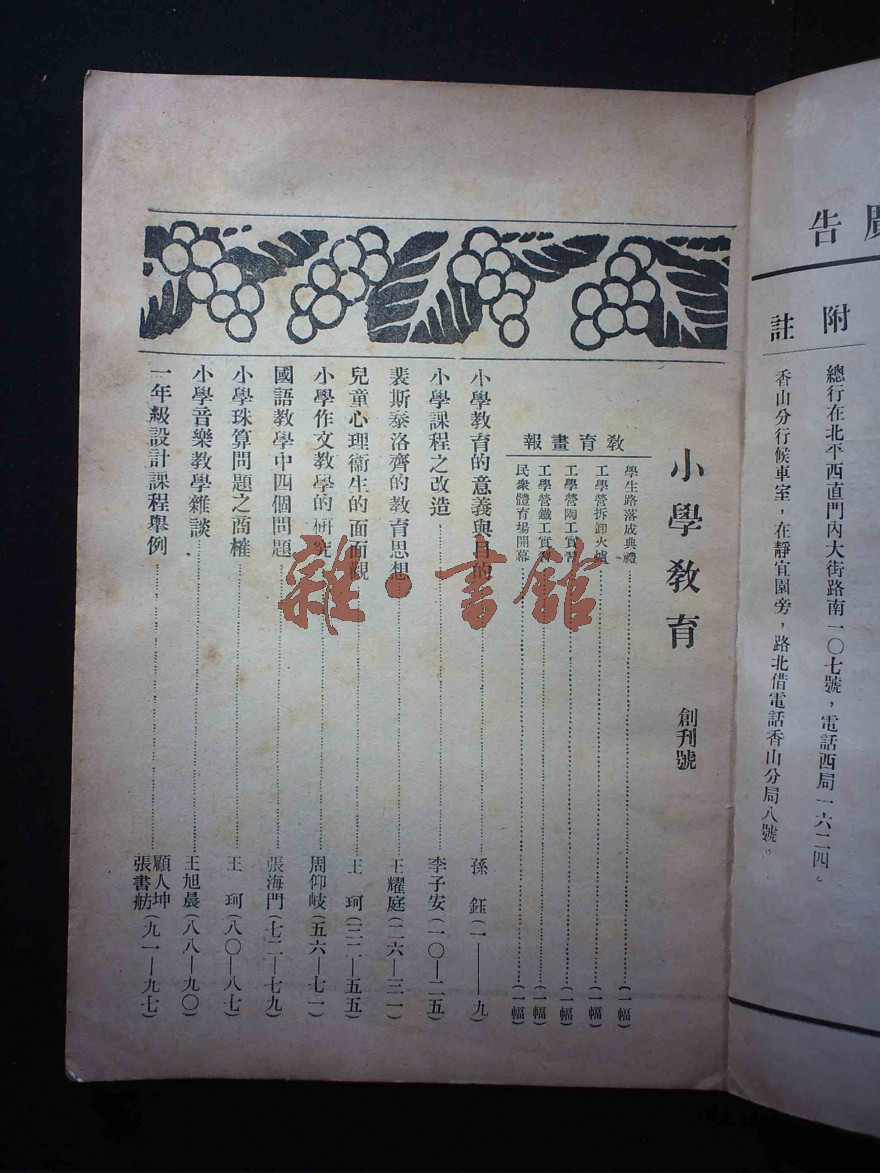 廣告
附註
總行在北平西直門內大街路南一〇七號，電話西局一六二四。
香山分行候車室，在靜宜園旁，路北借電話香山分局八號。
小學教育 創刊號
教育畫報
學生路落成典禮……(一幅)
工學營拆卸火爐……(一幅)
工學營陶工實習……(一幅)
工學營鐵工實習……(一幅)
民衆體育場開幕……(一幅)
小學教育的意義與目的……孫 鈺(一——九)
小學課程之改造……李子安(一〇—二五)
裴斯泰洛齊的教育思想……王耀庭(二六—三一)
兒童心理衞生的面面觀……王 珂(三二—五五)
小學作文教學的研究……周仰岐(五六—七一)
國語教學中四個問題……張海門(七二—七九)
小學珠算問題之商榷……王 珂(八〇—八七)
小學音樂教學雜談……王旭晨(八八—九〇)
一年級設計課程舉例……顧人坤 張書舫(九一—九七)
雜·書館